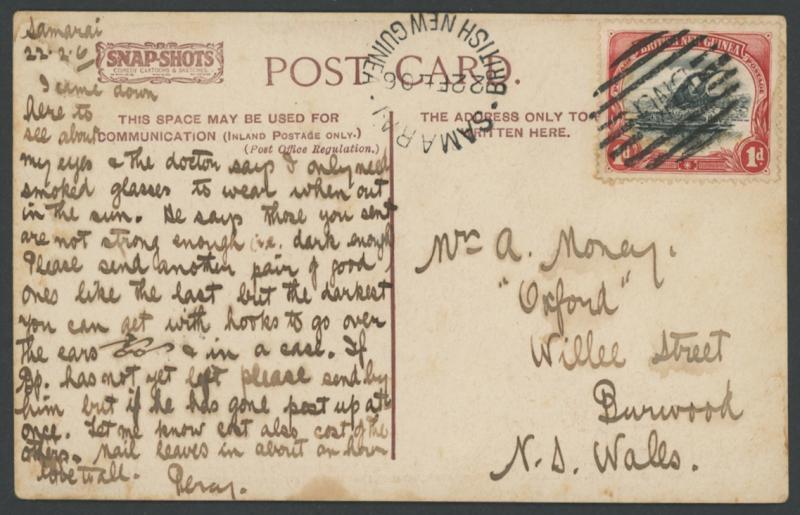 Samarai
22.2.6
SNAP-SHOTS
COMEDY CARTOONS & SKETCHES.
POST CARD.
SAMARAI. BRITISH NEW GUINEA
22 FE 06
BRITISH NEW GUINEA
POSTAGE
1d. 1d.
THIS SPACE MAY BE USED FOR
COMMUNICATION (INLAND POSTAGE ONLY.)
(Post Office Regulation.)
THE ADDRESS ONLY TO
WRITTEN HERE.
I came down
here to
see about
my eyes & the doctor says I only need
smoked glasses to wear when out
in the sun. He says those you sent
are not strong enough i.e. dark enough
Please send another pair of good
ones like the last but the darkest
you can get with hooks to go over
the ears & in a case. If
Bp. has not yet left please send by
him but if he has gone post up at
once. Let me know cost also cost of the
others. Mail leaves in about an hour
love to all.
Percy.
Mrs A. Money.
"Oxford"
Willee Street
Burwood
N. S. Wales.